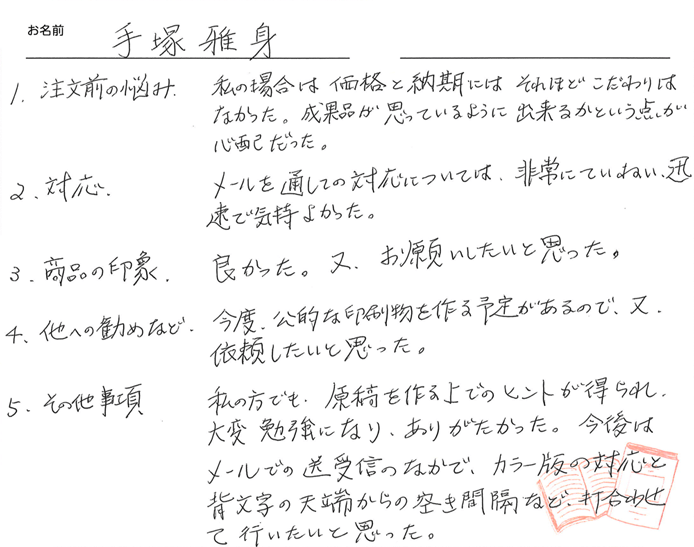 お名前 手塚雅身
1. 注文前の悩み. 私の場合は価格と納期にはそれほどこだわりは
なかった。成果品が思っているように出来るかという点が
心配だった。
2. 対応. メールを通しての対応については、非常にていねい、迅
速で気持よかった。
3. 商品の印象. 良かった。又、お願いしたいと思った。
4. 他への勧めなど. 今度、公的な印刷物を作る予定があるので、又、
依頼したいと思った。
5. その他事項 私の方でも、原稿を作る上でのヒントが得られ、
大変勉強になり、ありがたかった。今後は
メールでの送受信のなかで、カラー版の対応と
背文字の天端からの空き間隔など、打合わせ
て行いたいと思った。